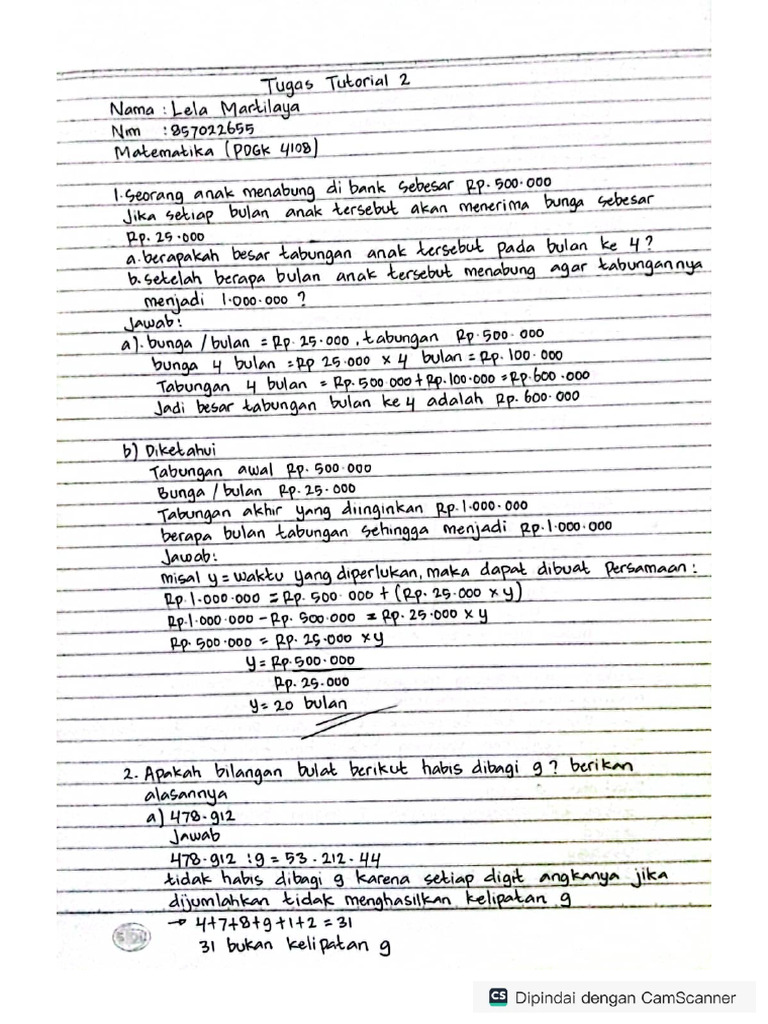 Tugas Tutorial 2
Nama : Lela Martilaya
Nim : 857022655
Matematika (PDGK 4108)
1. Seorang anak menabung di bank sebesar Rp. 500.000
Jika setiap bulan anak tersebut akan menerima bunga sebesar
Rp. 25.000
a. berapakah besar tabungan anak tersebut pada bulan ke 4 ?
b. setelah berapa bulan anak tersebut menabung agar tabungannya
menjadi 1.000.000 ?
Jawab :
a). bunga / bulan = Rp. 25.000 , tabungan Rp. 500.000
bunga 4 bulan = Rp 25.000 x 4 bulan = Rp. 100.000
Tabungan 4 bulan = Rp. 500.000 + Rp. 100.000 = Rp. 600.000
Jadi besar tabungan bulan ke 4 adalah Rp. 600.000
b) Diketahui
Tabungan awal Rp. 500.000
Bunga / bulan Rp. 25.000
Tabungan akhir yang diinginkan Rp. 1.000.000
berapa bulan tabungan sehingga menjadi Rp. 1.000.000
Jawab :
misal y = waktu yang diperlukan, maka dapat dibuat Persamaan :
Rp. 1.000.000 = Rp. 500.000 + (Rp. 25.000 x y)
Rp. 1.000.000 - Rp. 500.000 = Rp. 25.000 x y
Rp. 500.000 = Rp. 25.000 x y
y = Rp. 500.000
Rp. 25.000
y = 20 bulan
2. Apakah bilangan bulat berikut habis dibagi 9 ? berikan
alasannya
a) 478.912
Jawab
478.912 : 9 = 53.212.44
tidak habis dibagi 9 karena setiap digit angkanya jika
dijumlahkan tidak menghasilkan kelipatan 9
→ 4+7+8+9+1+2 = 31
31 bukan kelipatan 9
CS Dipindai dengan CamScanner